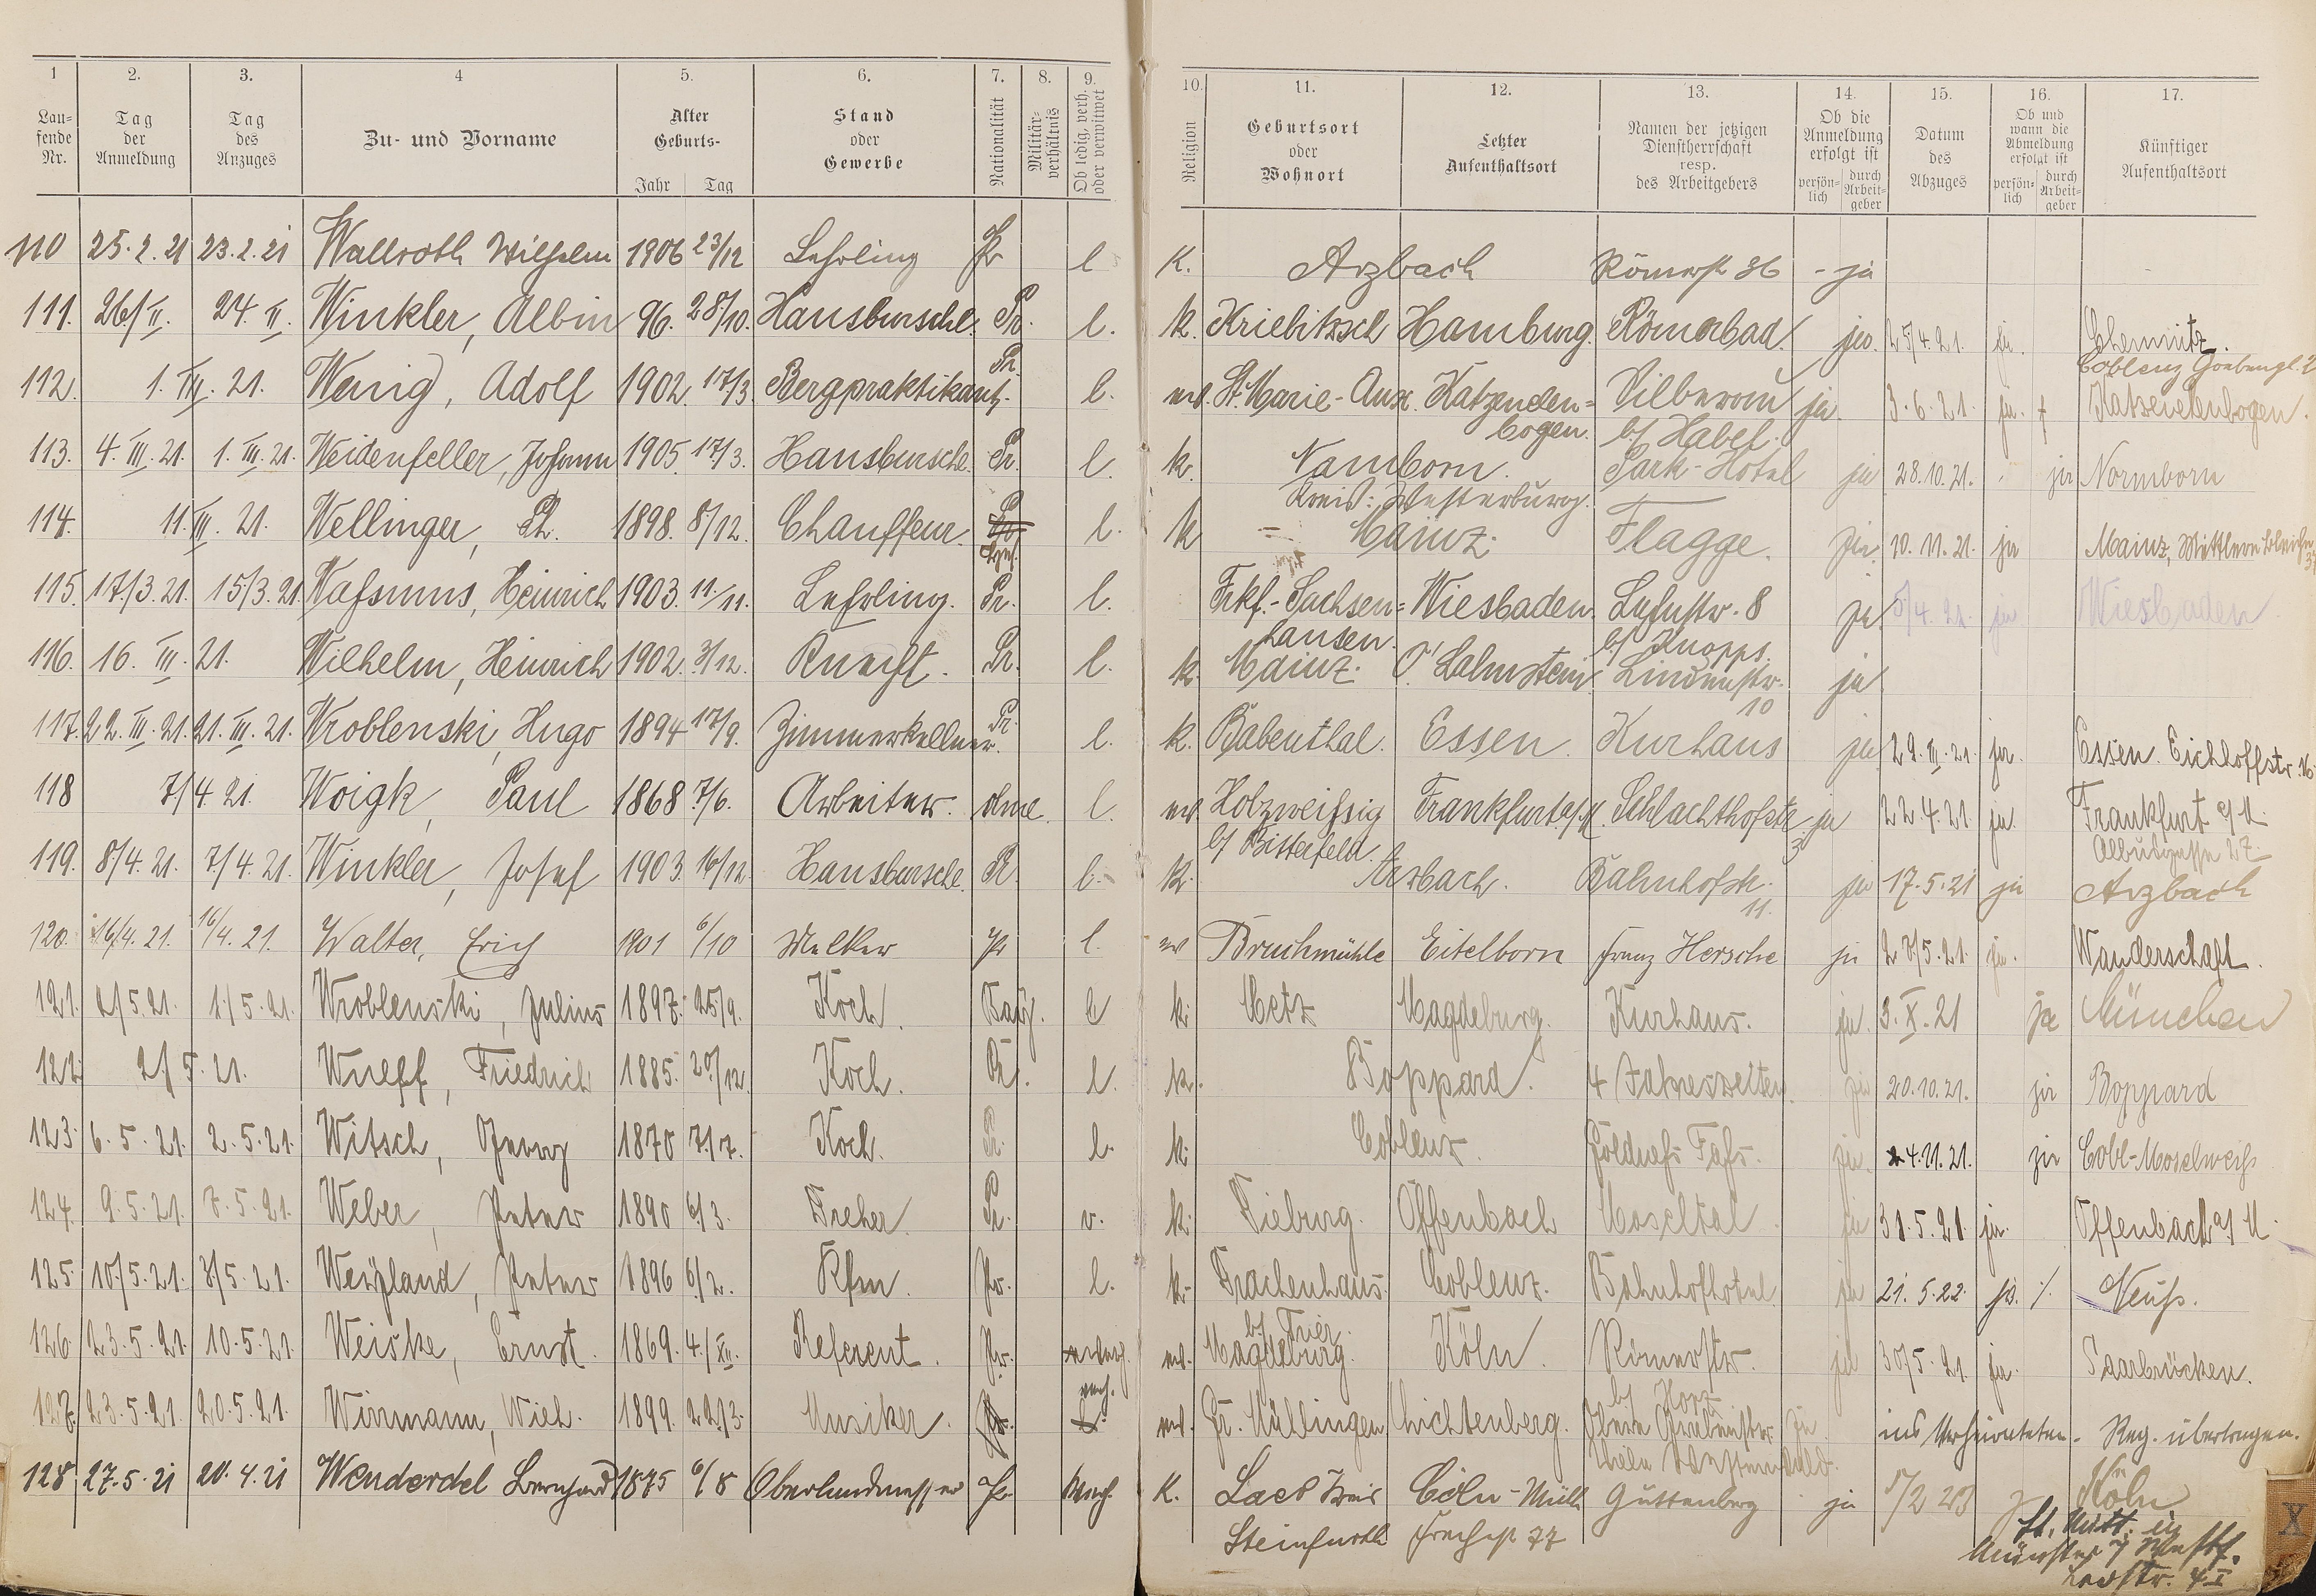 1 2. 3. 4 5. 6. 7. 8. 9. 10. 11. 12. 13. 14. 15. 16. 17.
Lau-
fende
Nr.
Tag
der
Anmeldung
Tag
des
Anzuges
Zu- und Vorname
Alter
Geburts-
Jahr Tag
Stand
oder
Gewerbe
Nationalität
Militär-
verhältnis
Ob ledig, verh.
oder verwitwet
Religion
Geburtsort
oder
Wohnort
Letzter
Aufenthaltsort
Namen der jetzigen
Dienstherrschaft
resp.
des Arbeitgebers
Ob die
Anmeldung
erfolgt ist
persön-
lich
durch
Arbeit-
geber
Datum
des
Abzuges
Ob und
wann die
Abmeldung
erfolgt ist
persön-
lich
durch
Arbeit-
geber
Künftiger
Aufenthaltsort
110 25.2.21 23.2.21 Wallroth Wilhelm 1906 23/12 Lehrling Pr l K. Arzbach Römerstr 36 - ja
111. 26/II. 24.II. Winkler, Albin 96. 28/10. Hausbursche. Pr. l. k. Kriebitzsch Hamburg. Römerbad. ja. 25/4.21. ja. Chemnitz.
112. 1.III.21. Wenig, Adolf 1902. 17/3. Bergpraktikant. Pr. l. ev. St. Marie-Aux. Katzenelen= Silberau ja. 3.6.21. ja. Katzenelenbogen.
bogen. b/ Habel.
113. 4.III.21. 1.III.21. Weidenfeller, Johann 1905. 17/3. Hausbursche. Pr. l. k. Namborn. Park-Hotel ja 28.10.21. ja Normborn
Kreis: Westerburg.
114. 11.III.21. Wellinger, Ph. 1898. 8/12. Chauffeur. l. k Mainz. Flagge. ja. 10.11.21. ja Mainz, Mittlere Bleiche
115. 17/3.21. 15/3.21. Wafsmus, Heinrich 1903. 11/11. Lehrling. Pr. l. Frkf.-Sachsen= Wiesbaden. 8 ja. 5/4.21. ja Wiesbaden
hausen. b/ Knopps.
116. 16.III.21. Wilhelm, Heinrich 1902. 3/12. Knecht. Pr. l. k. Mainz. O'Lahnstein Lindenstr. ja
10
117. 22.III.21. 21.III.21. Wroblenski, Hugo 1894 17/9. Zimmerkellner. Pr. l. k. Babenthal. Essen. Kurhaus ja 29.III.21. ja. Essen. Eichhoffstr. 16.
118 7/4.21. Woigk, Paul 1868 7/6. Arbeiter. ohne. l. ev. Holzweifsig Frankfurt a/M. Schlachthofstr. ja 22.4.21. ja. Frankfurt a/M.
b/ Bitterfeld. 3
119. 8/4.21. 7/4.21. Winkler, Josef 1903. 16/12. Hausbursche. Pr. l. k. Arzbach. Bahnhofstr. ja 17.5.21 ja Arzbach
11.
120. 16/4.21. 16/4.21. Walter, Erich 1901 6/10 Melker Pr l. ev Bruchmühle Eitelborn Franz Hersche ja 27/5.21. ja. Wanderschaft.
121. 2/5.21. 1/5.21. Wroblenski, Julius 1897. 25/9. Koch. Bay. l k. Metz Magdeburg. Kurhaus. ja. 3.X.21 ja München
122. 2/5.21. Wueff, Friedrich 1885. 20/12. Koch. Pr. l. k. Boppard. 4 Jahreszeiten. ja 20.10.21. ja Boppard
123. 6.5.21. 2.5.21. Witsch, Georg 1870 7/7. Koch. Pr. l. k. Coblenz. ja. 4.11.21. ja Cobl-Moselweifs
124. 9.5.21. 7.5.21. Weber, Peter 1890 6/3. Dreher. Pr. v. k. Dieburg. Offenbach Moseltal ja 31.5.21. ja. Offenbach a/M.
125. 10/5.21. 3/5.21. Weyland, Peter 1896 6/2. Kfm. Pr. l. k. Drachenhaus. Coblenz. Bahnhofhotel ja 21.5.22. ja. Neufs.
b/ Trier.
126. 23.5.21. 10.5.21. Weiske, Ernst. 1869. 4/XII. Referent. Pr. ev. Magdeburg. Köln. Römerstr. ja 30/5.21 ja. Saarbrücken.
127. 23.5.21. 20.5.21. Wirrmann, Wilh. 1899. 22/3. Musiker. Pr. verh. ev. Gr. Müllingen Lichtenberg. ja ins Verheirateten-Reg. übertragen.
128. 27.5.21 20.4.21 Wenderdel Bernhard 1875 6/8 Oberlandmesser Pr verh. K. Laer Kreis Cöln-Mülh Guttenberg ja 1/2 23 Köln
Steinfurth 77
Münster / Westf.
X